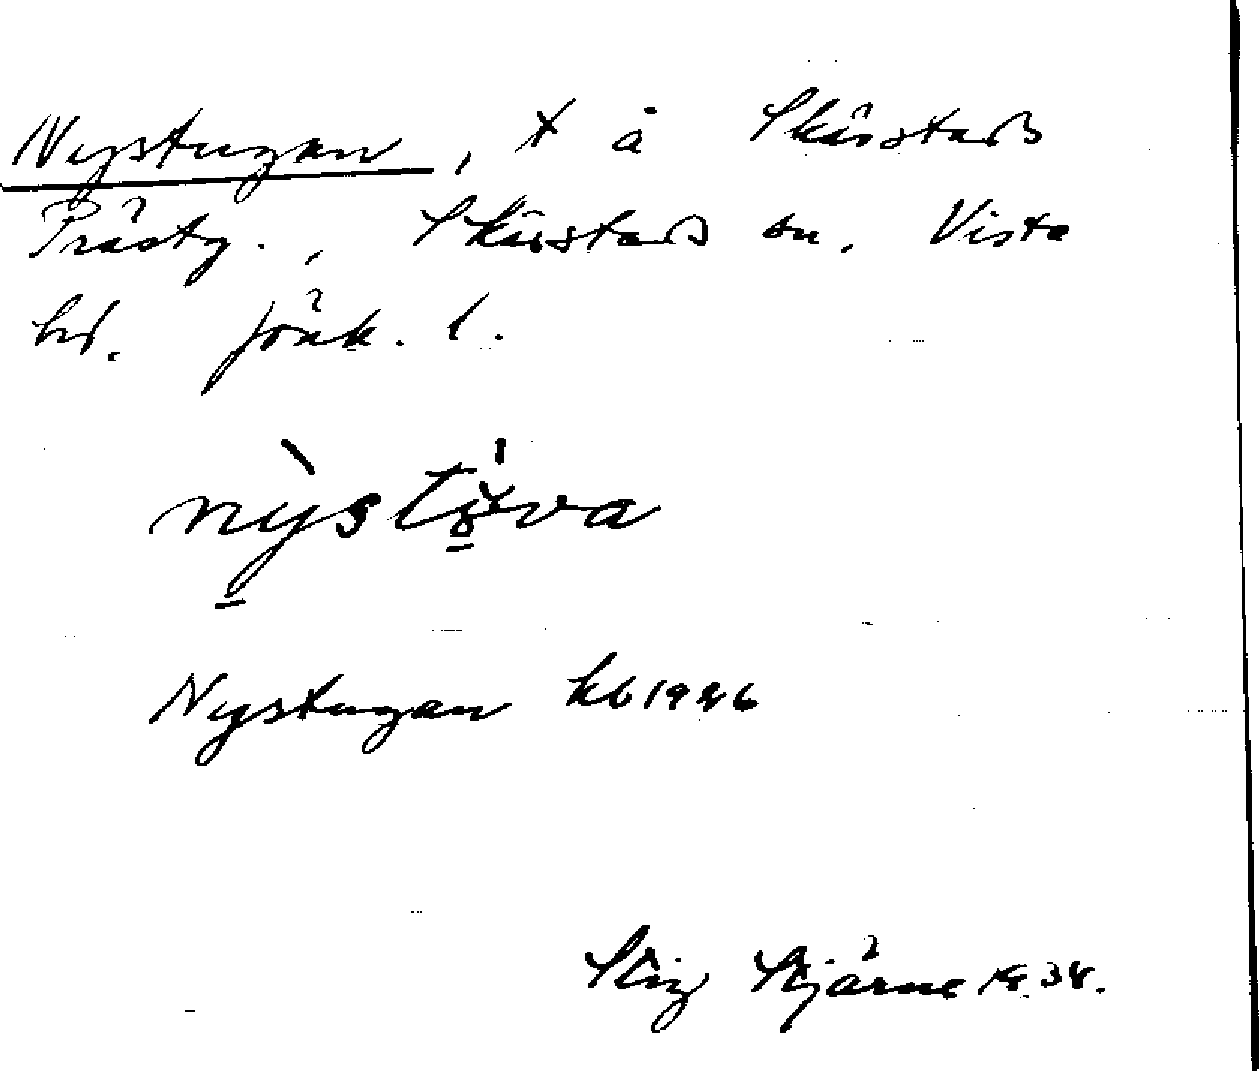 Nystugan, x å Skärstads
Prästg., Skärstads sn. Vista
hd. Jönk. l.
nỳstu̇va
Nystugan kb 1926
Stig Stjärne 1938.